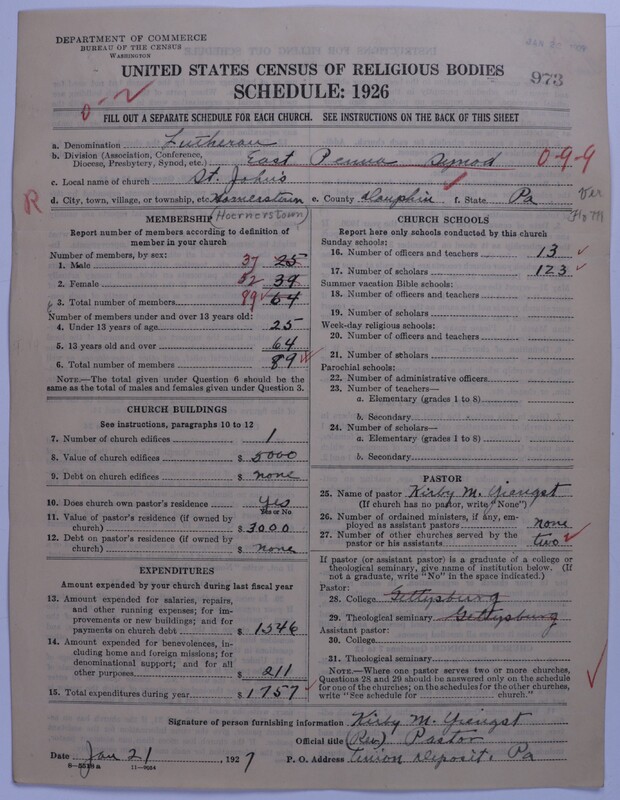 DEPARTMENT OF COMMERCE
BUREAU OF THE CENSUS
WASHINGTON
973
UNITED STATES CENSUS OF RELIGIOUS BODIES
SCHEDULE: 1926
FILL OUT A SEPARATE SCHEDULE FOR EACH CHURCH. SEE INSTRUCTIONS ON THE BACK OF THIS SHEET
a. Denomination Lutheran
b. Division (Association, Conference, Diocese, Presbytery, Synod, etc.) East Penna Synod 0-9-9
c. Local name of church St. John's
d. City, town, village, or township, etc. Hornerstown e. County Dauphin f. State Pa
(Hoernerstown)
R
MEMBERSHIP
Report number of members according to definition of member in your church
Number of members, by sex:
1. Male 37 25
2. Female 52 39
3. Total number of members 89 64
Number of members under and over 13 years old:
4. Under 13 years of age 25
5. 13 years old and over 64
6. Total number of members 89
NOTE.—The total given under Question 6 should be the same as the total of males and females given under Question 3.
CHURCH BUILDINGS
See instructions, paragraphs 10 to 12
7. Number of church edifices 1
8. Value of church edifices $ 5000
9. Debt on church edifices $ none
10. Does church own pastor's residence Yes
Yes or No
11. Value of pastor's residence (if owned by church) $ 3000
12. Debt on pastor's residence (if owned by church) $ none
EXPENDITURES
Amount expended by your church during last fiscal year
13. Amount expended for salaries, repairs, and other running expenses; for improvements or new buildings; and for payments on church debt $ 1546
14. Amount expended for benevolences, including home and foreign missions; for denominational support; and for all other purposes $ 211
15. Total expenditures during year $ 1757
CHURCH SCHOOLS
Report here only schools conducted by this church
Sunday schools:
16. Number of officers and teachers 13
17. Number of scholars 123
Summer vacation Bible schools:
18. Number of officers and teachers
19. Number of scholars
Week-day religious schools:
20. Number of officers and teachers
21. Number of scholars
Parochial schools:
22. Number of administrative officers
23. Number of teachers—
a. Elementary (grades 1 to 8)
b. Secondary
24. Number of scholars—
a. Elementary (grades 1 to 8)
b. Secondary
PASTOR
25. Name of pastor Kirby M. Yiengst
(If church has no pastor, write "None")
26. Number of ordained ministers, if any, employed as assistant pastors none
27. Number of other churches served by the pastor or his assistants two
If pastor (or assistant pastor) is a graduate of a college or theological seminary, give name of institution below. (If not a graduate, write "No" in the space indicated.)
Pastor:
28. College Gettysburg
29. Theological seminary Gettysburg
Assistant pastor:
30. College
31. Theological seminary
NOTE.—Where one pastor serves two or more churches, Questions 28 and 29 should be answered only on the schedule for one of the churches; on the schedules for the other churches, write "See schedule for church."
Signature of person furnishing information Kirby M. Yiengst
Official title (Rev) Pastor
Date Jan 21 1927 P. O. Address Union Deposit, Pa
8—5518a 11—9684